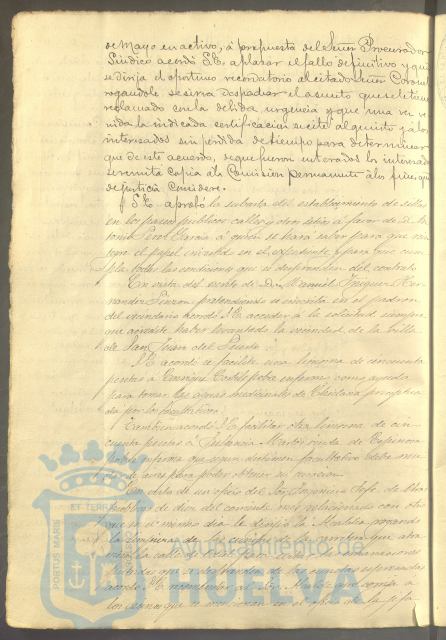 de Mayo en activo, á propuesta del Señor Procurador
Síndico acordó S.E. aplazar el fallo definitivo y que
se dirija el oportuno recordatorio al citado Señor Coronel
rogándole se sirva despachar el asunto que se le tiene
reclamado con la debida urgencia y que una vez ve
nida la indicada certificacion se cite al quinto y á los
interesados sin pérdida de tiempo para determinar
que de este acuerdo, de que fueron enterados los interesados
se remita copia á la Comision permanente á los fines que
de justicia considere.
S.E. aprobó la subasta del establecimiento de sillas
en los paseos públicos calles y otros sitios á favor de D. An
tonio Perez García á quien se hará saber para que rein
tegre el papel invertido en el expediente y para que cum
pla todas las condiciones que se desprenden del contrato.
En vista del escrito de D. Manuel Iñiguez Her
nandez Pinzon pretendiendo se inscriba en el padron
del vecindario acordó S.E. acceder á la solicitud siempre
que acredite haber levantado la vecindad de la villa
de San Juan del Puerto.
S.E. acordó se facilite una limosna de cincuenta
pesetas á Enrique pobre enfermo como ayuda
para tomar las aguas medicinales de Chiclana
por los facultativos.
Tambien acordó S.E. facilitar otra limosna de cin
cuenta pesetas á Martin viuda de Espinosa
pobre enferma que segun dictamen facultativo debe mu
dar de aires para poder obtener su curacion.
En vista de un oficio del Ingeniero Jefe de Obras
públicas de diez del corriente muy relacionado con otro
que en el mismo dia le dirijió la Alcaldía rogando
la
la calle
que se desprenden de las
acordó S.E. al Sr. Alcalde que conteste á
los que se mencionan en el oficio de la Jefa
PORTUS MARIS
ET TERRAE
Ayuntamiento de
HUELVA